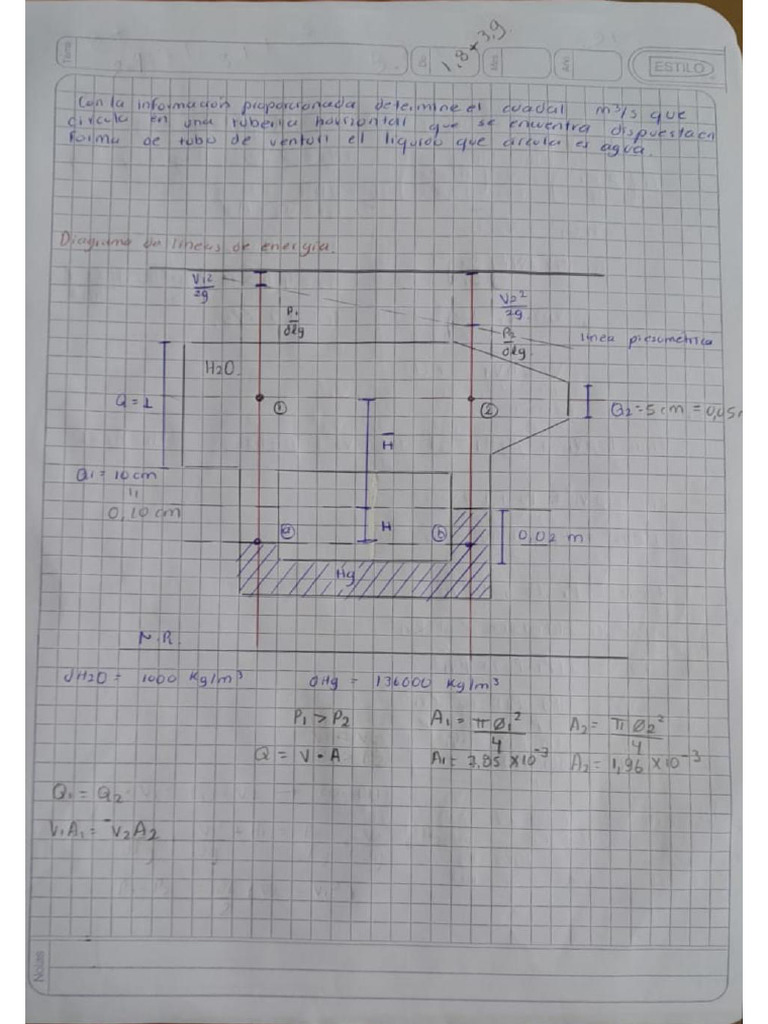 1,8 * 3,9
ESTILO
Con la informacion proporcionada determine el cuadal m³/s que
circula en una tuberia horisontal que se encuentra dispuesta en
forma de tubo de venturi el liquido que circula es agua.
Diagrama de lineas de energia.
V1²/2g
V2²/2g
P1/δlg
P2/δlg
linea piesometrica
H2O.
Q = 1
①
②
Ø2 = 5 cm = 0,05
H
Ø1 = 10 cm
"
0,10 cm
ⓐ
H
ⓑ
0,02 m
Hg
N.R.
δH2O = 1000 kg/m³
δHg = 136000 kg/m³
P1 > P2
A1 = π Ø1²/4
A2 = π Ø2²/4
Q = V • A
A1 = 7,85 × 10⁻³
A2 = 1,96 × 10⁻³
Q1 = Q2
V1A1 = V2A2
Notas